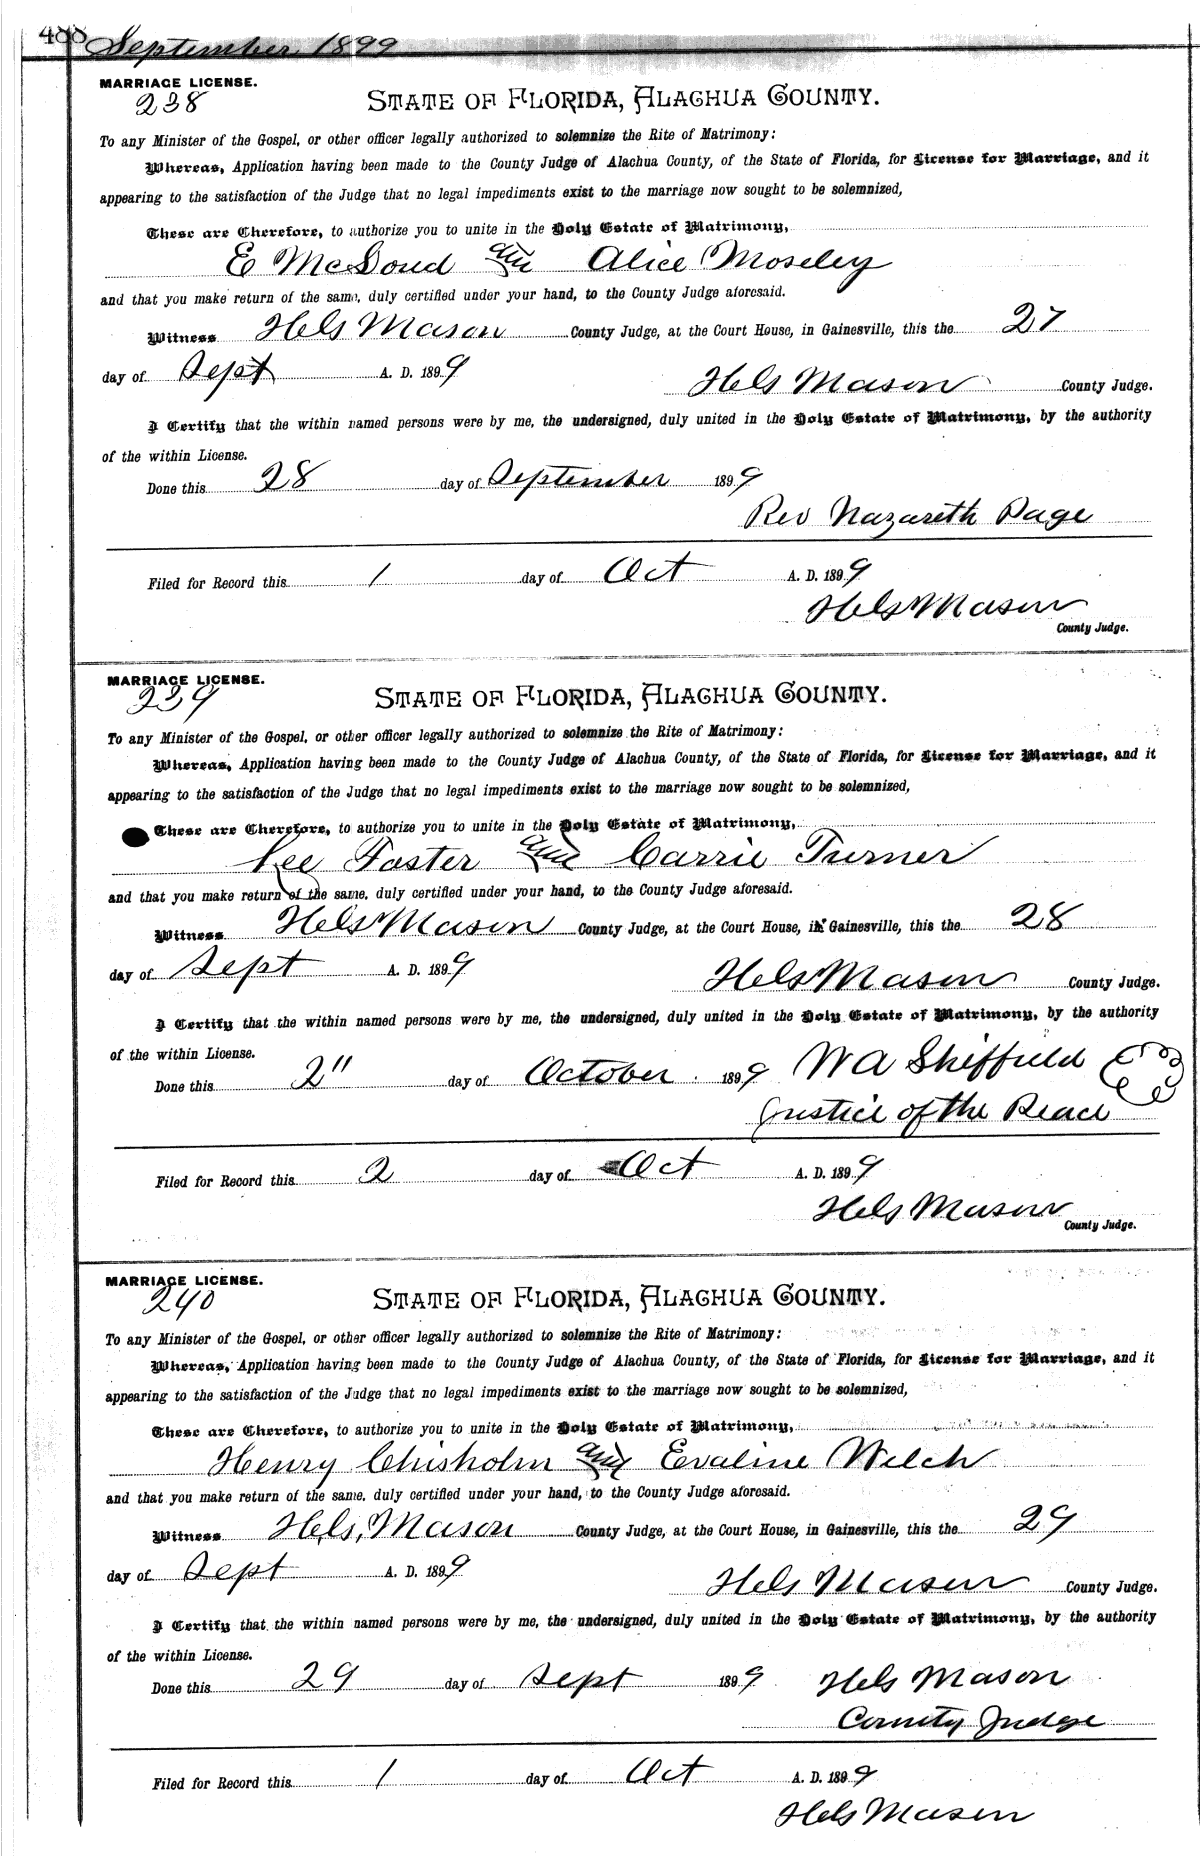 488 September 1899
MARRIAGE LICENSE.
238
STATE OF FLORIDA, ALACHUA COUNTY.
To any Minister of the Gospel, or other officer legally authorized to solemnize the Rite of Matrimony:
Whereas, Application having been made to the County Judge of Alachua County, of the State of Florida, for License for Marriage, and it
appearing to the satisfaction of the Judge that no legal impediments exist to the marriage now sought to be solemnized,
These are Therefore, to authorize you to unite in the Holy Estate of Matrimony,
E McDoud and Alice Moseley
and that you make return of the same, duly certified under your hand, to the County Judge aforesaid.
Witness Hels Mason County Judge, at the Court House, in Gainesville, this the 27
day of Sept A. D. 1899
Hels Mason County Judge.
I Certify that the within named persons were by me, the undersigned, duly united in the Holy Estate of Matrimony, by the authority
of the within License.
Done this 28 day of September 1899
Rev Nazareth Page
Filed for Record this 1 day of Oct A. D. 1899
Hels Mason
County Judge.
MARRIAGE LICENSE.
239
STATE OF FLORIDA, ALACHUA COUNTY.
To any Minister of the Gospel, or other officer legally authorized to solemnize the Rite of Matrimony:
Whereas, Application having been made to the County Judge of Alachua County, of the State of Florida, for License for Marriage, and it
appearing to the satisfaction of the Judge that no legal impediments exist to the marriage now sought to be solemnized,
These are Therefore, to authorize you to unite in the Holy Estate of Matrimony,
Lee Foster and Carrie Turner
and that you make return of the same, duly certified under your hand, to the County Judge aforesaid.
Witness Hels Mason County Judge, at the Court House, in Gainesville, this the 28
day of Sept A. D. 1899
Hels Mason County Judge.
I Certify that the within named persons were by me, the undersigned, duly united in the Holy Estate of Matrimony, by the authority
of the within License.
Done this 2" day of October 1899 W A Sheffield
Justice of the Peace
Filed for Record this 2 day of Oct A. D. 1899
Hels Mason
County Judge.
MARRIAGE LICENSE.
240
STATE OF FLORIDA, ALACHUA COUNTY.
To any Minister of the Gospel, or other officer legally authorized to solemnize the Rite of Matrimony:
Whereas, Application having been made to the County Judge of Alachua County, of the State of Florida, for License for Marriage, and it
appearing to the satisfaction of the Judge that no legal impediments exist to the marriage now sought to be solemnized,
These are Therefore, to authorize you to unite in the Holy Estate of Matrimony,
Henry Chisholm and Evaline Welch
and that you make return of the same, duly certified under your hand, to the County Judge aforesaid.
Witness Hels, Mason County Judge, at the Court House, in Gainesville, this the 29
day of Sept A. D. 1899
Hels Mason County Judge.
I Certify that the within named persons were by me, the undersigned, duly united in the Holy Estate of Matrimony, by the authority
of the within License.
Done this 29 day of Sept 1899 Hels Mason
County Judge
Filed for Record this 1 day of Oct A. D. 1899
Hels Mason